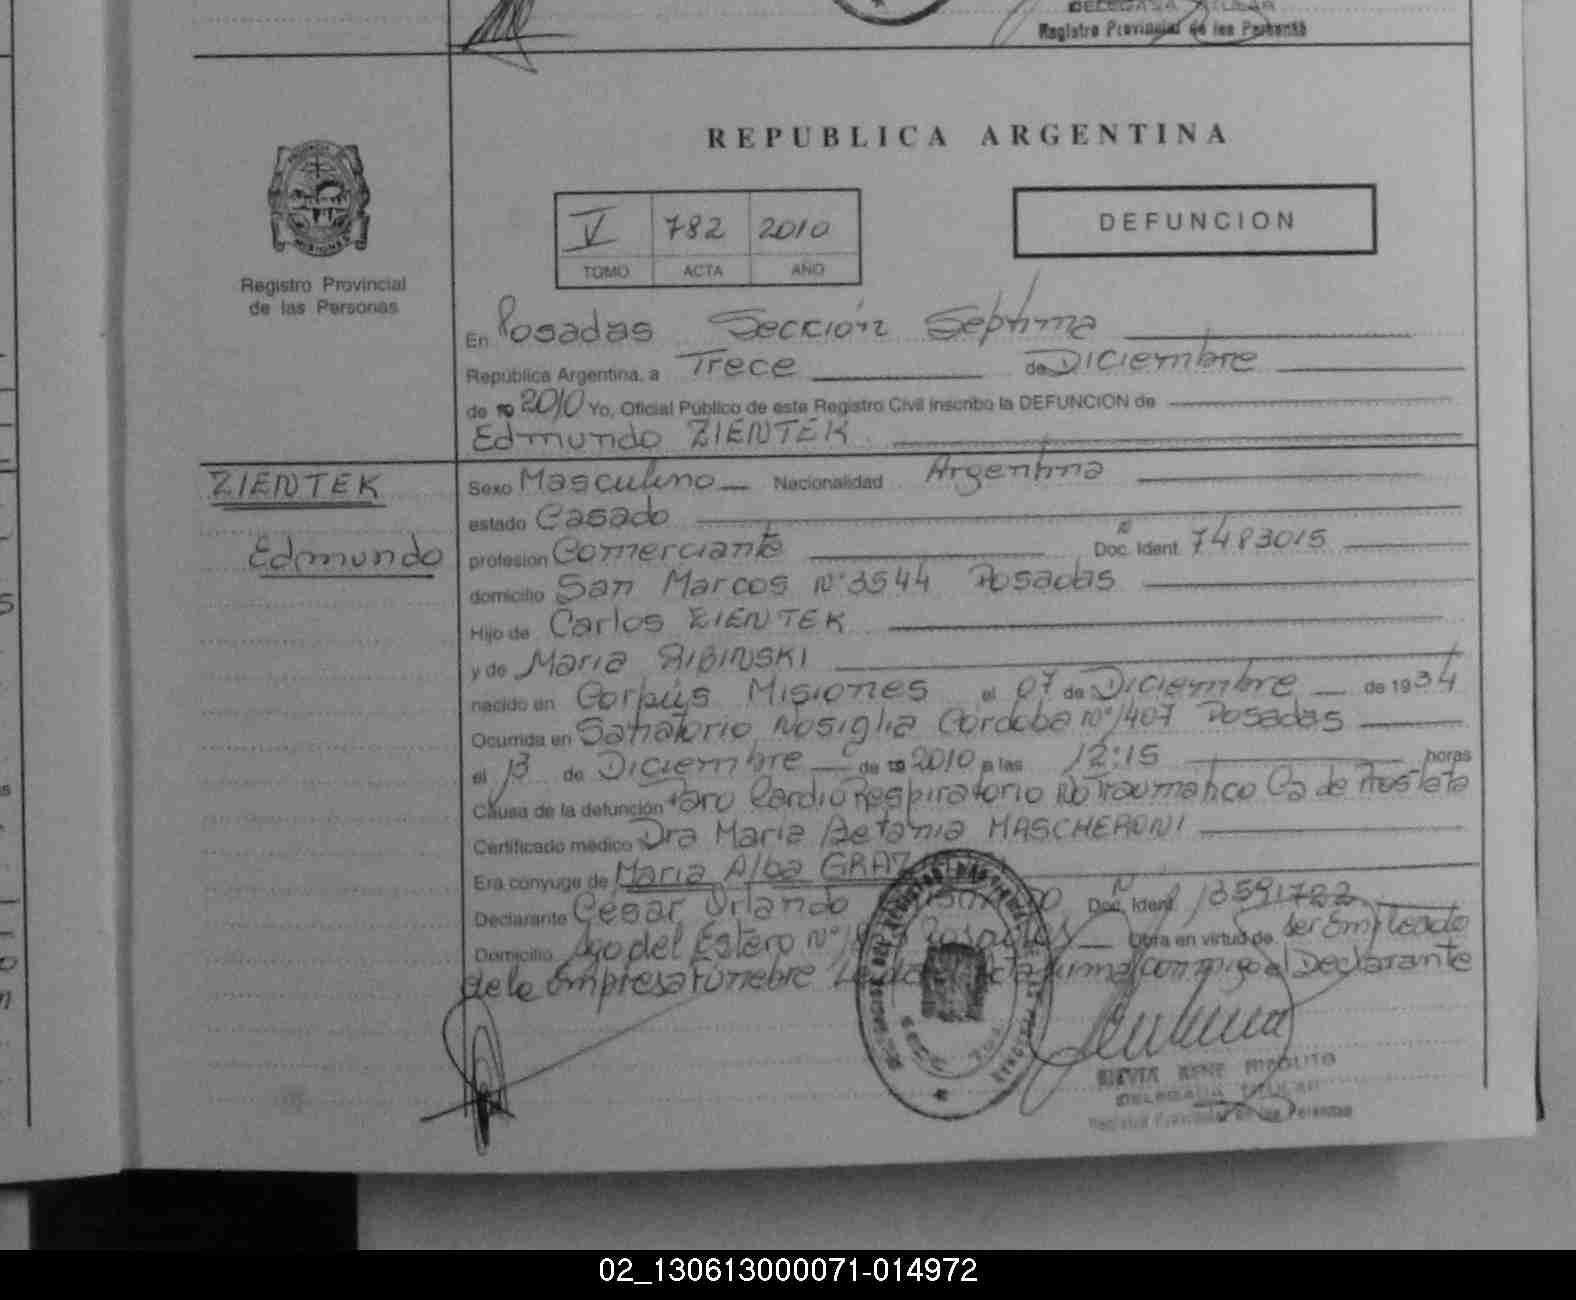 DELEGADA TITULAR
Registro Provincial de las Personas
REPUBLICA ARGENTINA
V 782 2010
TOMO ACTA AÑO
DEFUNCION
Registro Provincial
de las Personas
En Posadas Sección Septima
República Argentina, a Trece de Diciembre
de 19 2010 Yo, Oficial Público de este Registro Civil inscribo la DEFUNCION de
Edmundo ZIENTEK
ZIENTEK
Edmundo
Sexo Masculino Nacionalidad Argentina
estado Casado
profesion Comerciante Doc. Ident. N 7483015
domicilio San Marcos N° 3544 Posadas
Hijo de Carlos ZIENTEK
y de Maria RIBINSKI
nacido en Corpus Misiones el 07 de Diciembre de 1934
Ocurrida en Sanatorio Nosiglia Cordoba N° 1407 Posadas
el 13 de Diciembre de 19 2010 a las 12:15 horas
Causa de la defunción Paro Cardio Respiratorio No Traumatico Ca de Prostata
Certificado médico Dra Maria Betania MASCHERONI
Era conyuge de Maria Alba GRAZ
Declarante Cesar Orlando Doc. Ident. N 13591722
Domicilio Sgo del Estero N° Posadas Obra en virtud de ser Empleado
de la Empresa Funebre Leida firma conmigo el Declarante
DELEGADA TITULAR
Registro Provincial de las Personas
02_130613000071-014972